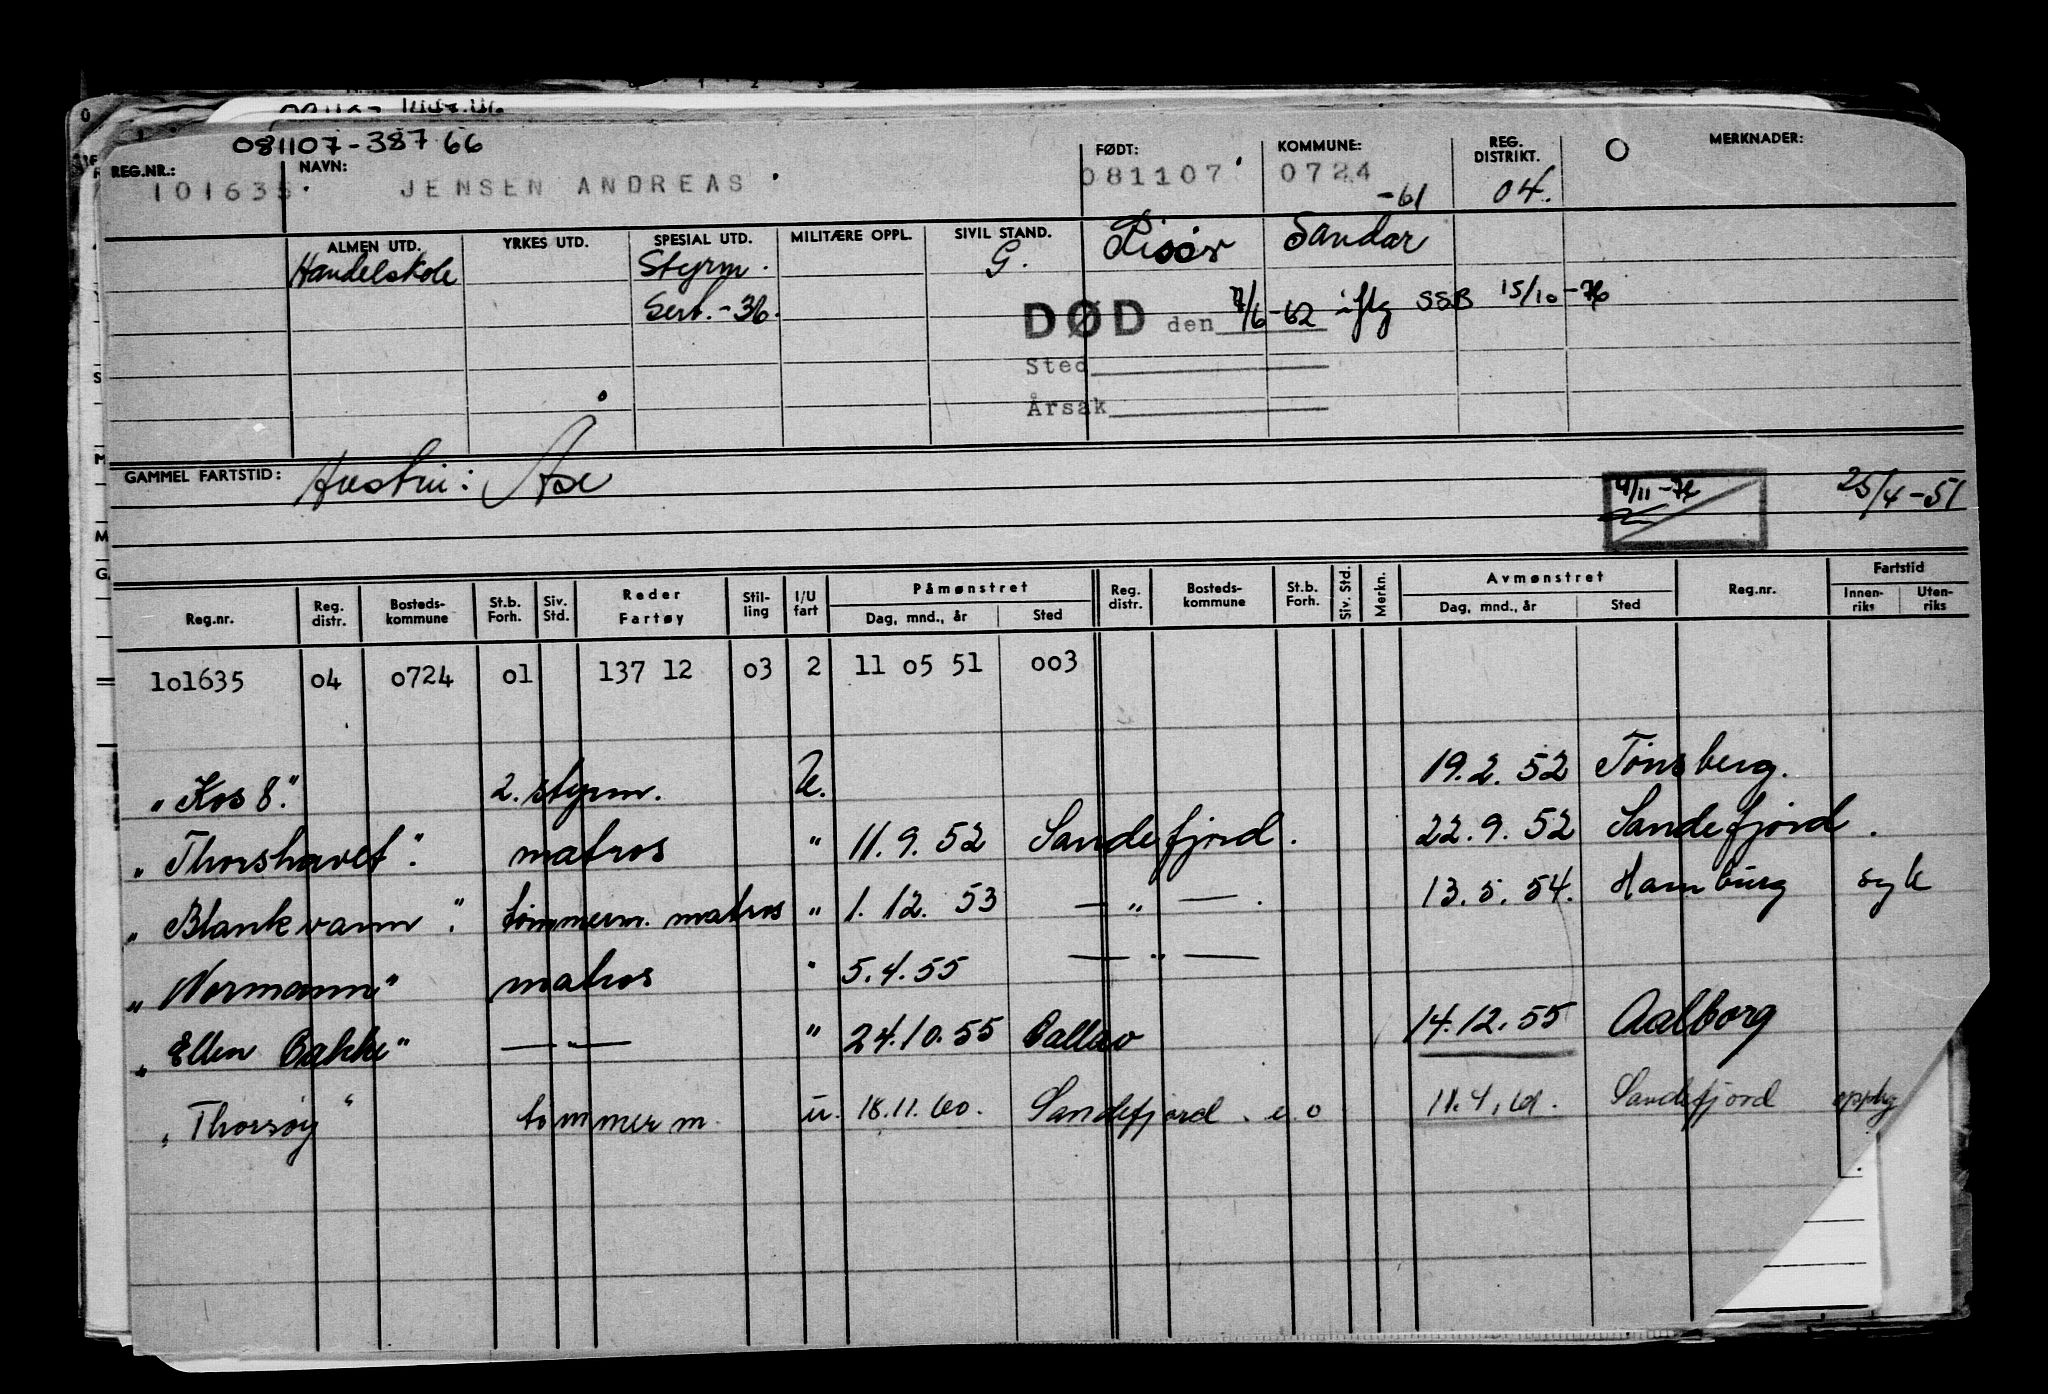 081107-38766
REG.NR.: NAVN: FØDT: KOMMUNE: REG. DISTRIKT. O MERKNADER:
101635. JENSEN ANDREAS. 081107. 0724 -61 04.
ALMEN UTD. YRKES UTD. SPESIAL UTD. MILITÆRE OPPL. SIVIL STAND. Risør Sandar
Handelskole Styrm. G.
Sert. -36.
DØD den 7/6-62 iflg SSB 15/10-76
Sted
Årsak
GAMMEL FARTSTID: Hustru: Åse 25/4-51
Reg.nr. Reg. distr. Bosteds-kommune St.b. Forh. Siv. Std. Reder Fartøy Stil-ling I/U fart Påmønstret Dag, mnd., år Sted Reg. distr. Bosteds-kommune St.b. Forh. Siv. Std. Merkn. Avmønstret Dag, mnd., år Sted Reg.nr. Fartstid Innen-riks Uten-riks
101635 04 0724 01 137 12 03 2 11 05 51 003
"Kos 8." 2. styrm. U. 19.2.52 Tønsberg.
"Thorshavet". matros " 11.9.52 Sandefjord. 22.9.52 Sandefjord.
"Blankvann". tømmerm. matros " 1.12.53 — " —. 13.5.54. Hamburg syk
"Normann" matros " 5.4.55 — " —
"Ellen Bakke" — " — " 24.10.55 Callao 14.12.55 Aalborg
"Thorsøy" tømmerm. u. 18.11.60. Sandefjord. e.o 11.4.61. Sandefjord